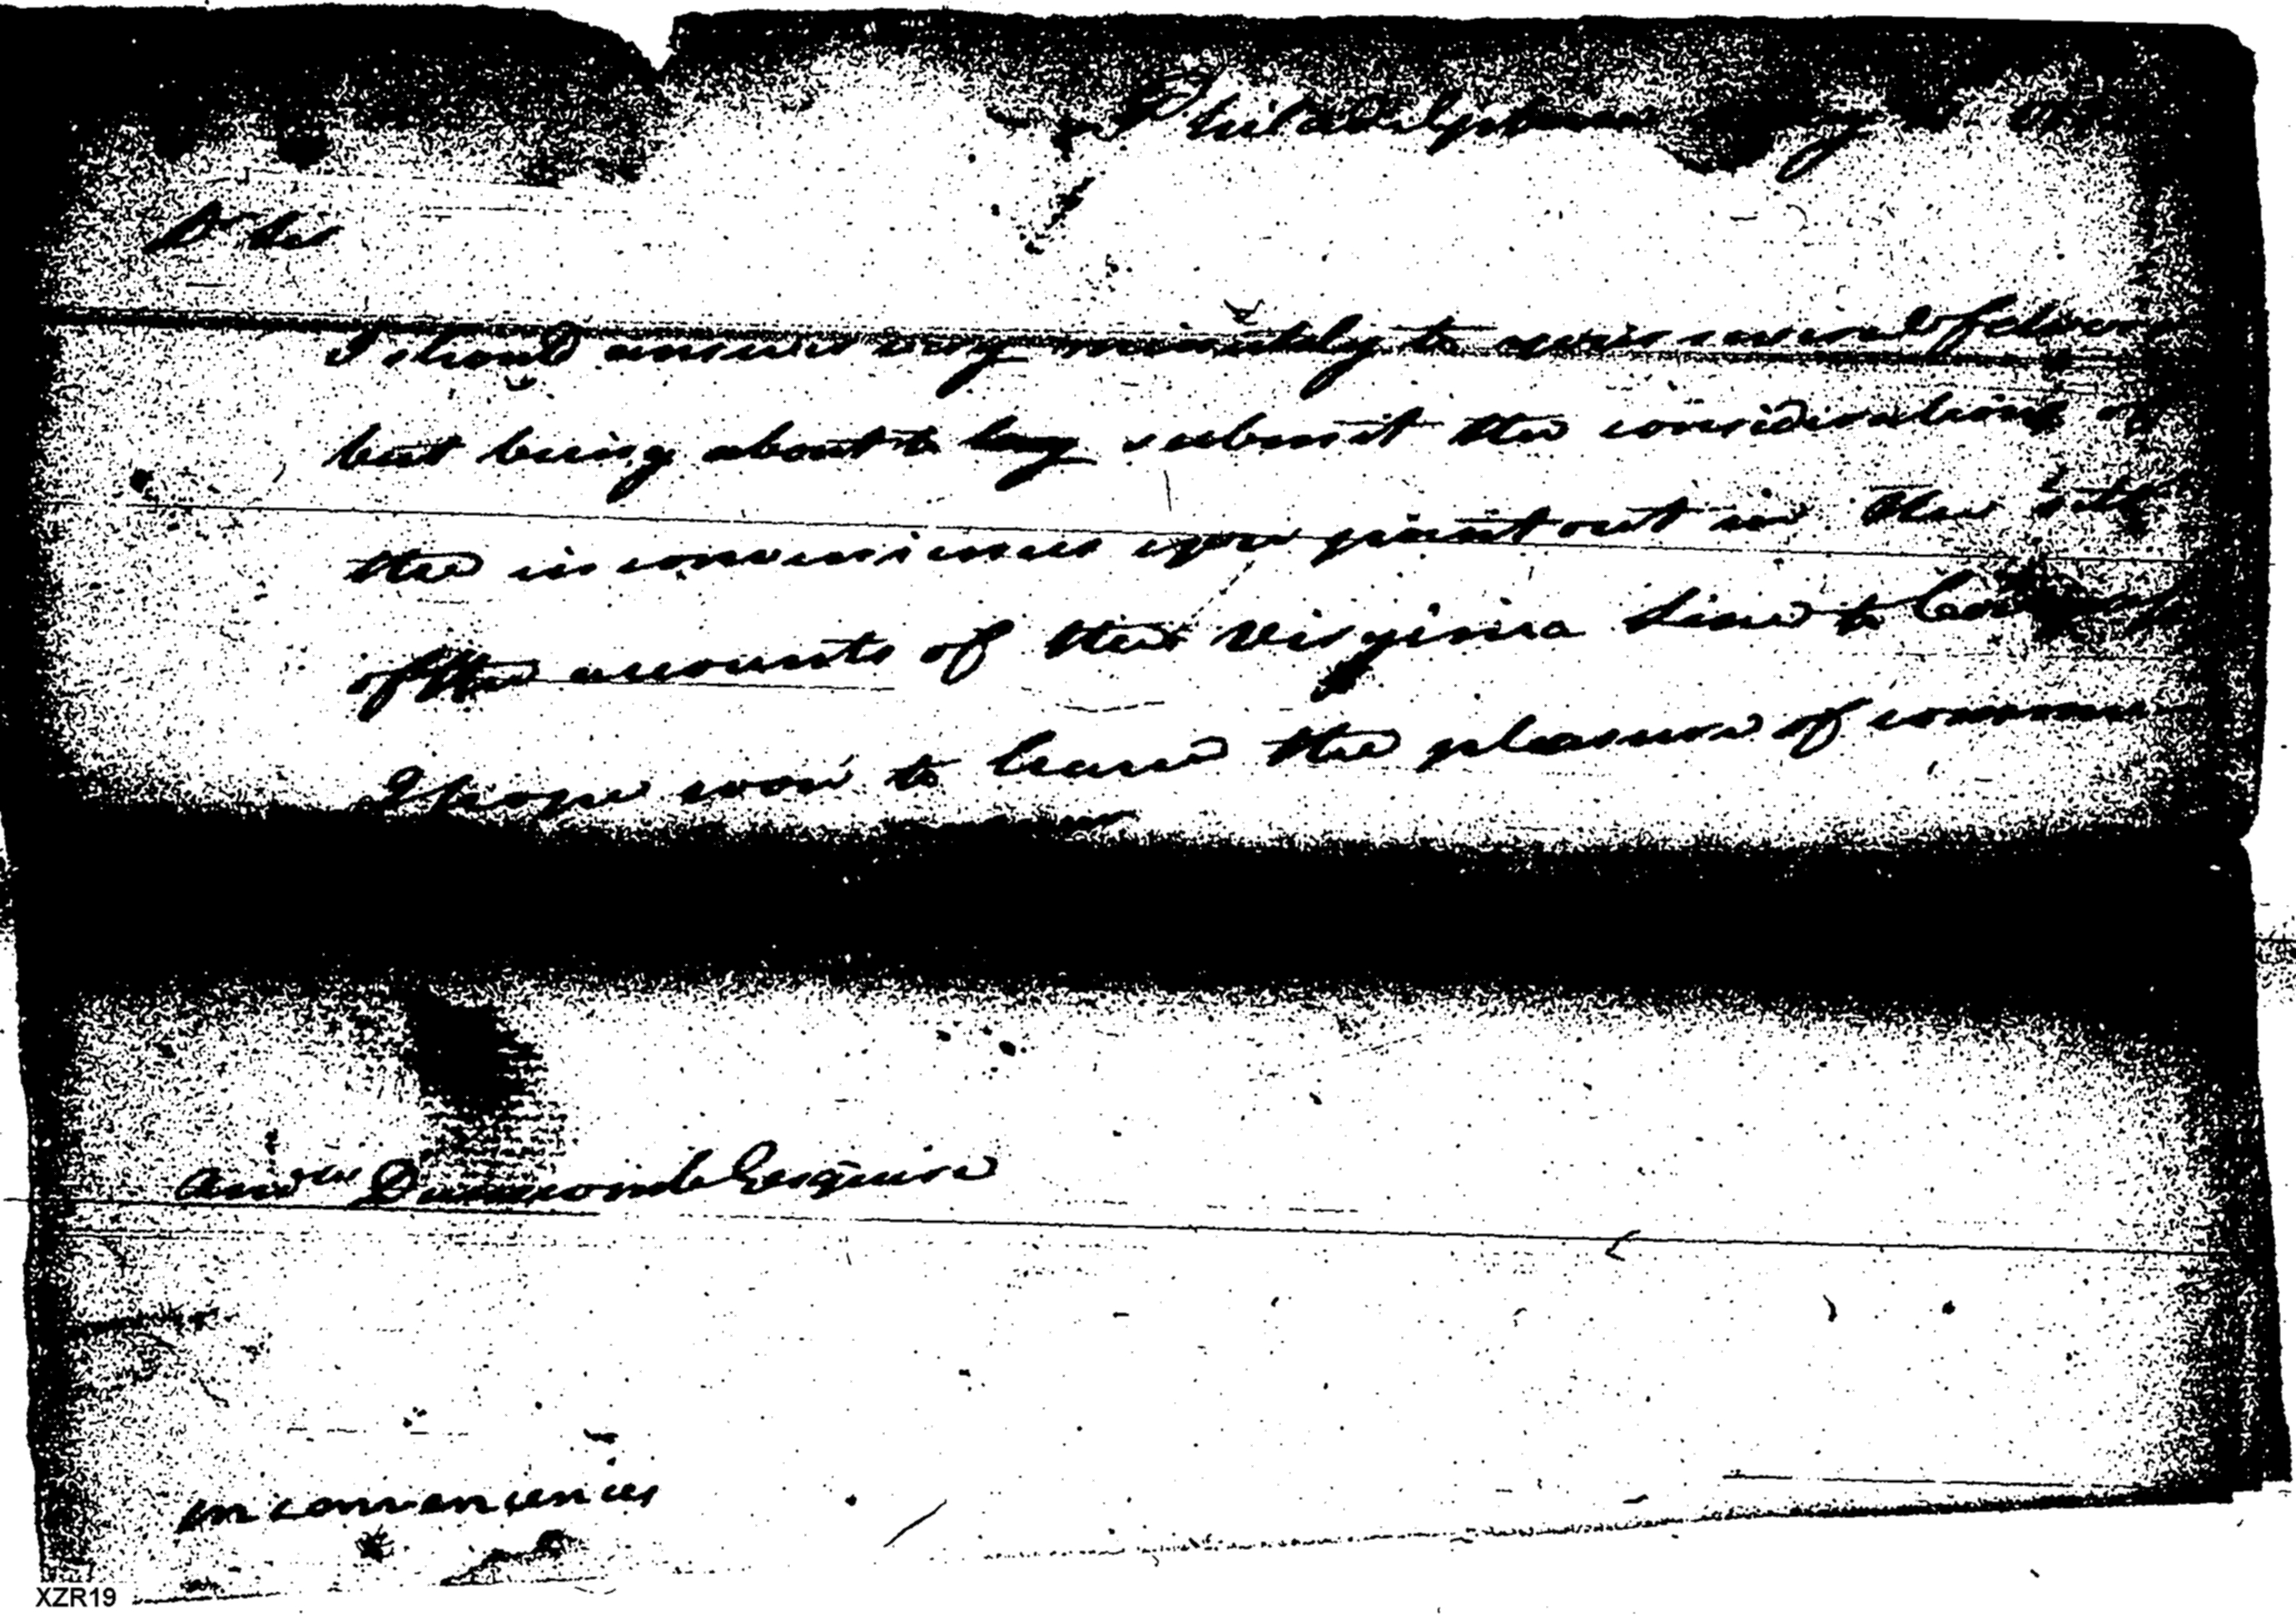 Philadelphia
Dr Sir
I should answer very minutely to your several
but being about to lay submit the considerations of
the inconveniences you point out in the
of the accounts of the Virginia Line to
I hope soon to have the pleasure of
Andw Dunscomb Esquire
inconveniences
XZR19